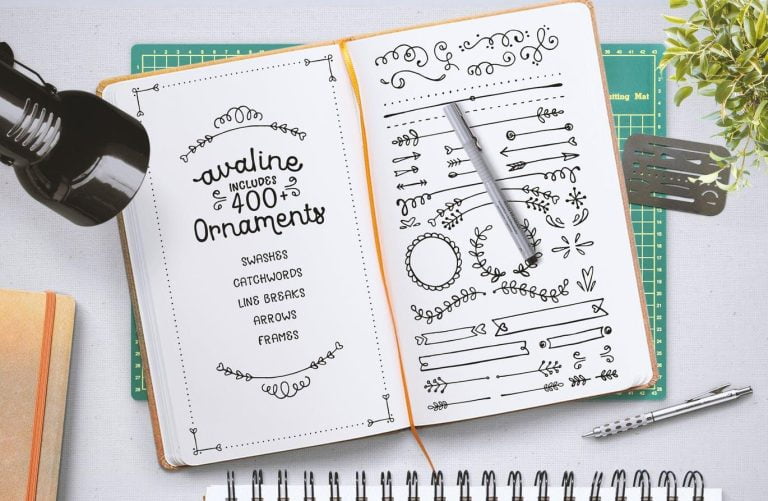 avaline
INCLUDES
400+
Ornaments
SWASHES
CATCHWORDS
LINE BREAKS
ARROWS
FRAMES
utting Mat